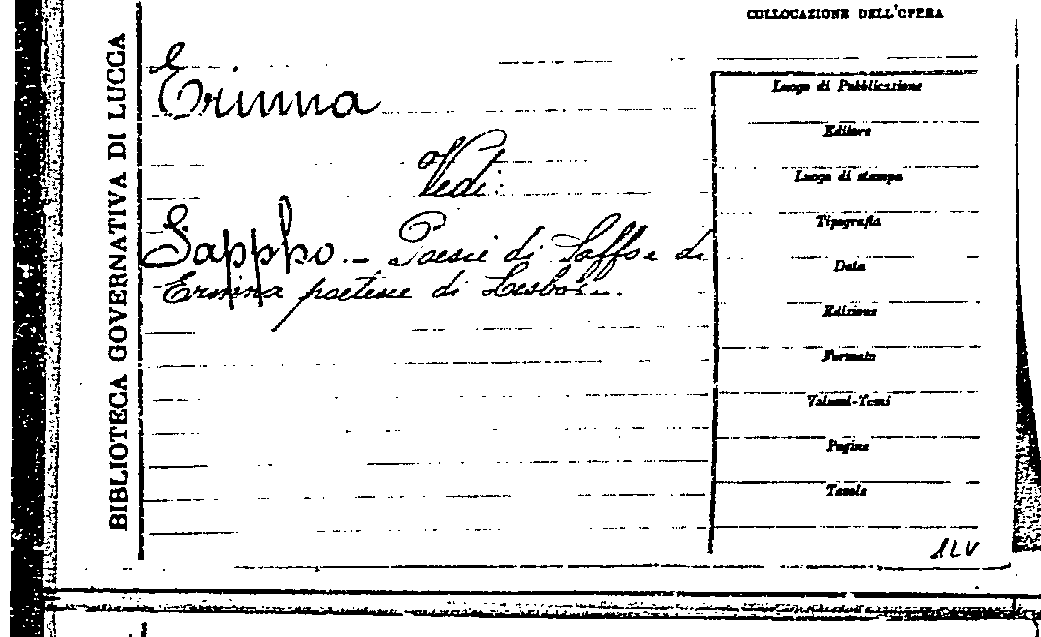 COLLOCAZIONE DELL'OPERA
BIBLIOTECA GOVERNATIVA DI LUCCA
Erinna
Vedi:
Sappho. - Poesie di Saffo e di
Erinna poetesse di Lesbo.
Luogo di Pubblicazione
Editore
Luogo di stampa
Tipografia
Data
Edizione
Formato
Volumi-Tomi
Pagine
Tavole